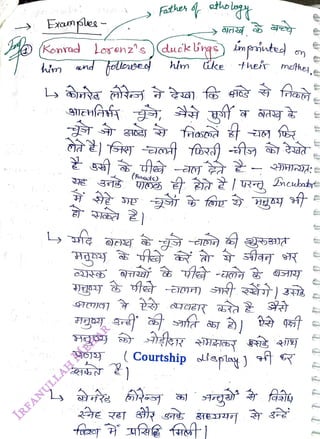 Father of ethology
→ Examples -
बतख के बच्चे
Imp ① Konrad Lorenz's ducklings imprinted on
him and followed him like their mother.
↳ कोनरेड लोरेन्ज ने देखा कि अण्डे से निकाले
आत्मनिर्भर चूजे, जैसे मुर्गी व बतख के
चूजे जो अण्डो से निकलते ही चल फिर
लेते हैं। जिस चलती फिरती चीज को देखते
है उसी के पीछे चल देते है - सामान्यतः
यह उनके पालक ही होते है। परन्तु Incubator
में सेहे गए चूजों के लिए ये मनुष्य भी
हो सकते है।
↳ यदि बतख के चूजे चलने की शुरूआत
मनुष्य के पीछे करें तो ये जीवन भर
व्यस्क बत्तखों के पीछे चलने के बजाय
मनुष्य के पीछे चलना जारी रखेंगे। उसके
अलावा वे ऐसे व्यवहार करते है जैसे
मनुष्य उन्हीं की जाति का हो। ऐसे पक्षी
मनुष्य को जोड़ीदार समझकर उसके साथ
प्रणय (Courtship display) भी कर
सकते है।
↳ कोनरेड लोरेन्ज का जन्तुओं से विशेष
स्नेह रहा और उनके अध्ययन से उन्हें
विश्व में प्रसिद्धि मिली।